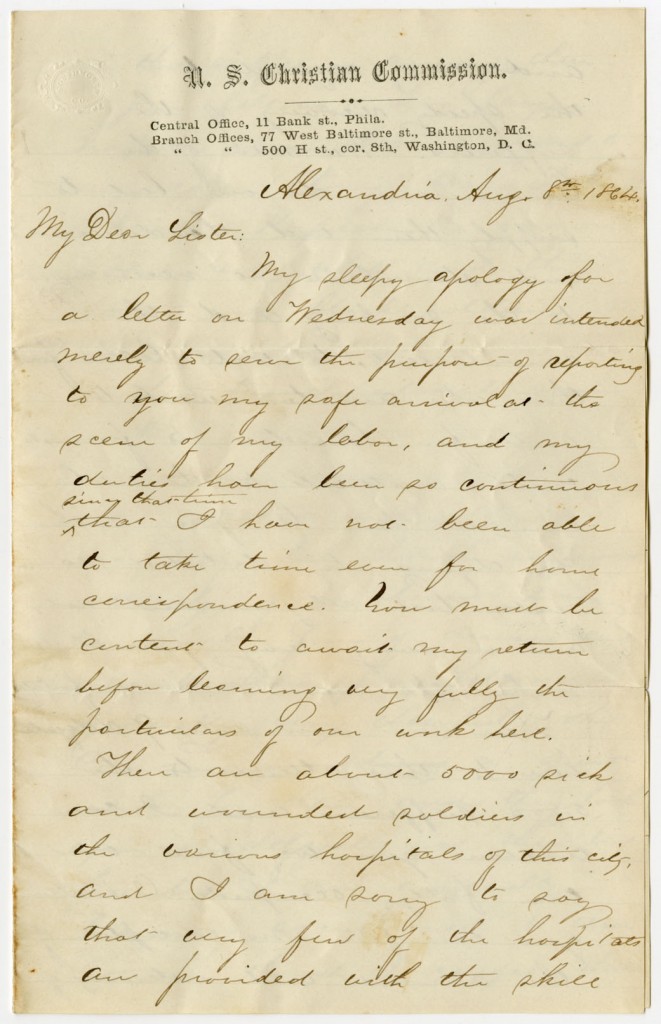 U. S. Christian Commission.
Central Office, 11 Bank st., Phila.
Branch Offices, 77 West Baltimore st., Baltimore, Md.
" " 500 H st., cor. 8th, Washington, D. C.
Alexandria, Aug. 8th. 1864.
My Dear Sister:
My sleepy apology for
a letter on Wednesday was intended
merely to serve the purpose of reporting
to you my safe arrival at the
scene of my labor, and my
duties have been so continuous
since that time
that I have not been able
to take time even for home
correspondence. You must be
content to await my return
before learning very fully the
particulars of our work here.
There are about 5000 sick
and wounded soldiers in
the various hospitals of this city,
and I am sorry to say
that very few of the hospitals
are provided with the skill